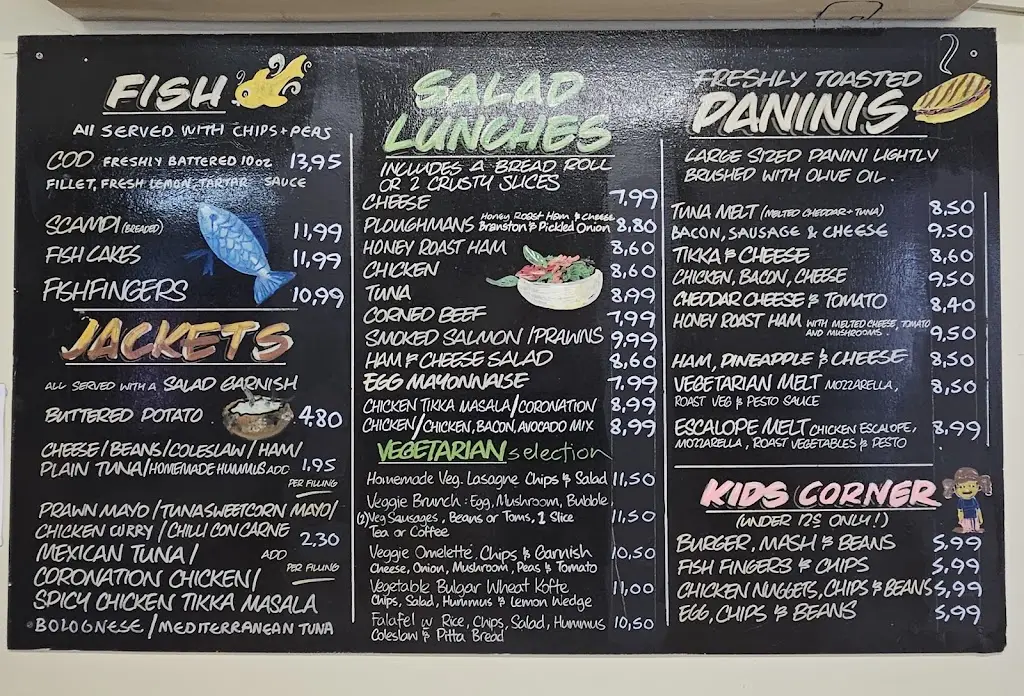 FISH
All SERVED WITH CHIPS + PEAS
COD FRESHLY BATTERED 10oz 13,95
FILLET, FRESH LEMON, TARTAR SAUCE
SCAMPI (BREADED) 11,99
FISH CAKES 11,99
FISHFINGERS 10,99
JACKETS
ALL SERVED WITH A SALAD GARNISH
BUTTERED POTATO 4,80
CHEESE/BEANS/COLESLAW/HAM/
PLAIN TUNA/HOMEMADE HUMMUS ADD 1,95
PER FILLING
PRAWN MAYO/TUNA SWEETCORN MAYO/
CHICKEN CURRY/CHILLI CON CARNE 2,30
MEXICAN TUNA/ ADD
PER FILLING
CORONATION CHICKEN/
SPICY CHICKEN TIKKA MASALA
BOLOGNESE/MEDITERRANEAN TUNA
SALAD
LUNCHES
INCLUDES A BREAD ROLL
OR 2 CRUSTY SLICES
CHEESE 7,99
PLOUGHMANS Honey Roast Ham & Cheese Branston & Pickled Onion 8,80
HONEY ROAST HAM 8,60
CHICKEN 8,60
TUNA 8,99
CORNED BEEF 7,99
SMOKED SALMON/PRAWNS 9,99
HAM & CHEESE SALAD 8,60
EGG MAYONNAISE 7,99
CHICKEN TIKKA MASALA/CORONATION 8,99
CHICKEN/CHICKEN, BACON, AVOCADO MIX 8,99
VEGETARIAN selection
Homemade Veg. Lasagne Chips & Salad 11,50
Veggie Brunch: Egg, Mushroom, Bubble,
(2) Veg Sausages, Beans or Toms, 1 Slice 11,50
Tea or Coffee
Veggie Omelette, Chips & Garnish 10,50
Cheese, Onion, Mushroom, Peas & Tomato
Vegetable Bulgar Wheat Kofte 11,00
Chips, Salad, Hummus & Lemon Wedge
Falafel w Rice, Chips, Salad, Hummus 10,50
Coleslaw & Pitta Bread
FRESHLY TOASTED
PANINIS
LARGE SIZED PANINI LIGHTLY
BRUSHED WITH OLIVE OIL.
TUNA MELT (MELTED CHEDDAR + TUNA) 8,50
BACON, SAUSAGE & CHEESE 9,50
TIKKA & CHEESE 8,60
CHICKEN, BACON, CHEESE 9,50
CHEDDAR CHEESE & TOMATO 8,40
HONEY ROAST HAM WITH MELTED CHEESE, TOMATO
AND MUSHROOMS. 9,50
HAM, PINEAPPLE & CHEESE 8,50
VEGETARIAN MELT MOZZARELLA, 8,50
ROAST VEG & PESTO SAUCE
ESCALOPE MELT CHICKEN ESCALOPE, 8,99
MOZZARELLA, ROAST VEGETABLES & PESTO
KIDS CORNER
(UNDER 12S ONLY!)
BURGER, MASH & BEANS 5,99
FISH FINGERS & CHIPS 5,99
CHICKEN NUGGETS, CHIPS & BEANS 5,99
EGG, CHIPS & BEANS 5,99